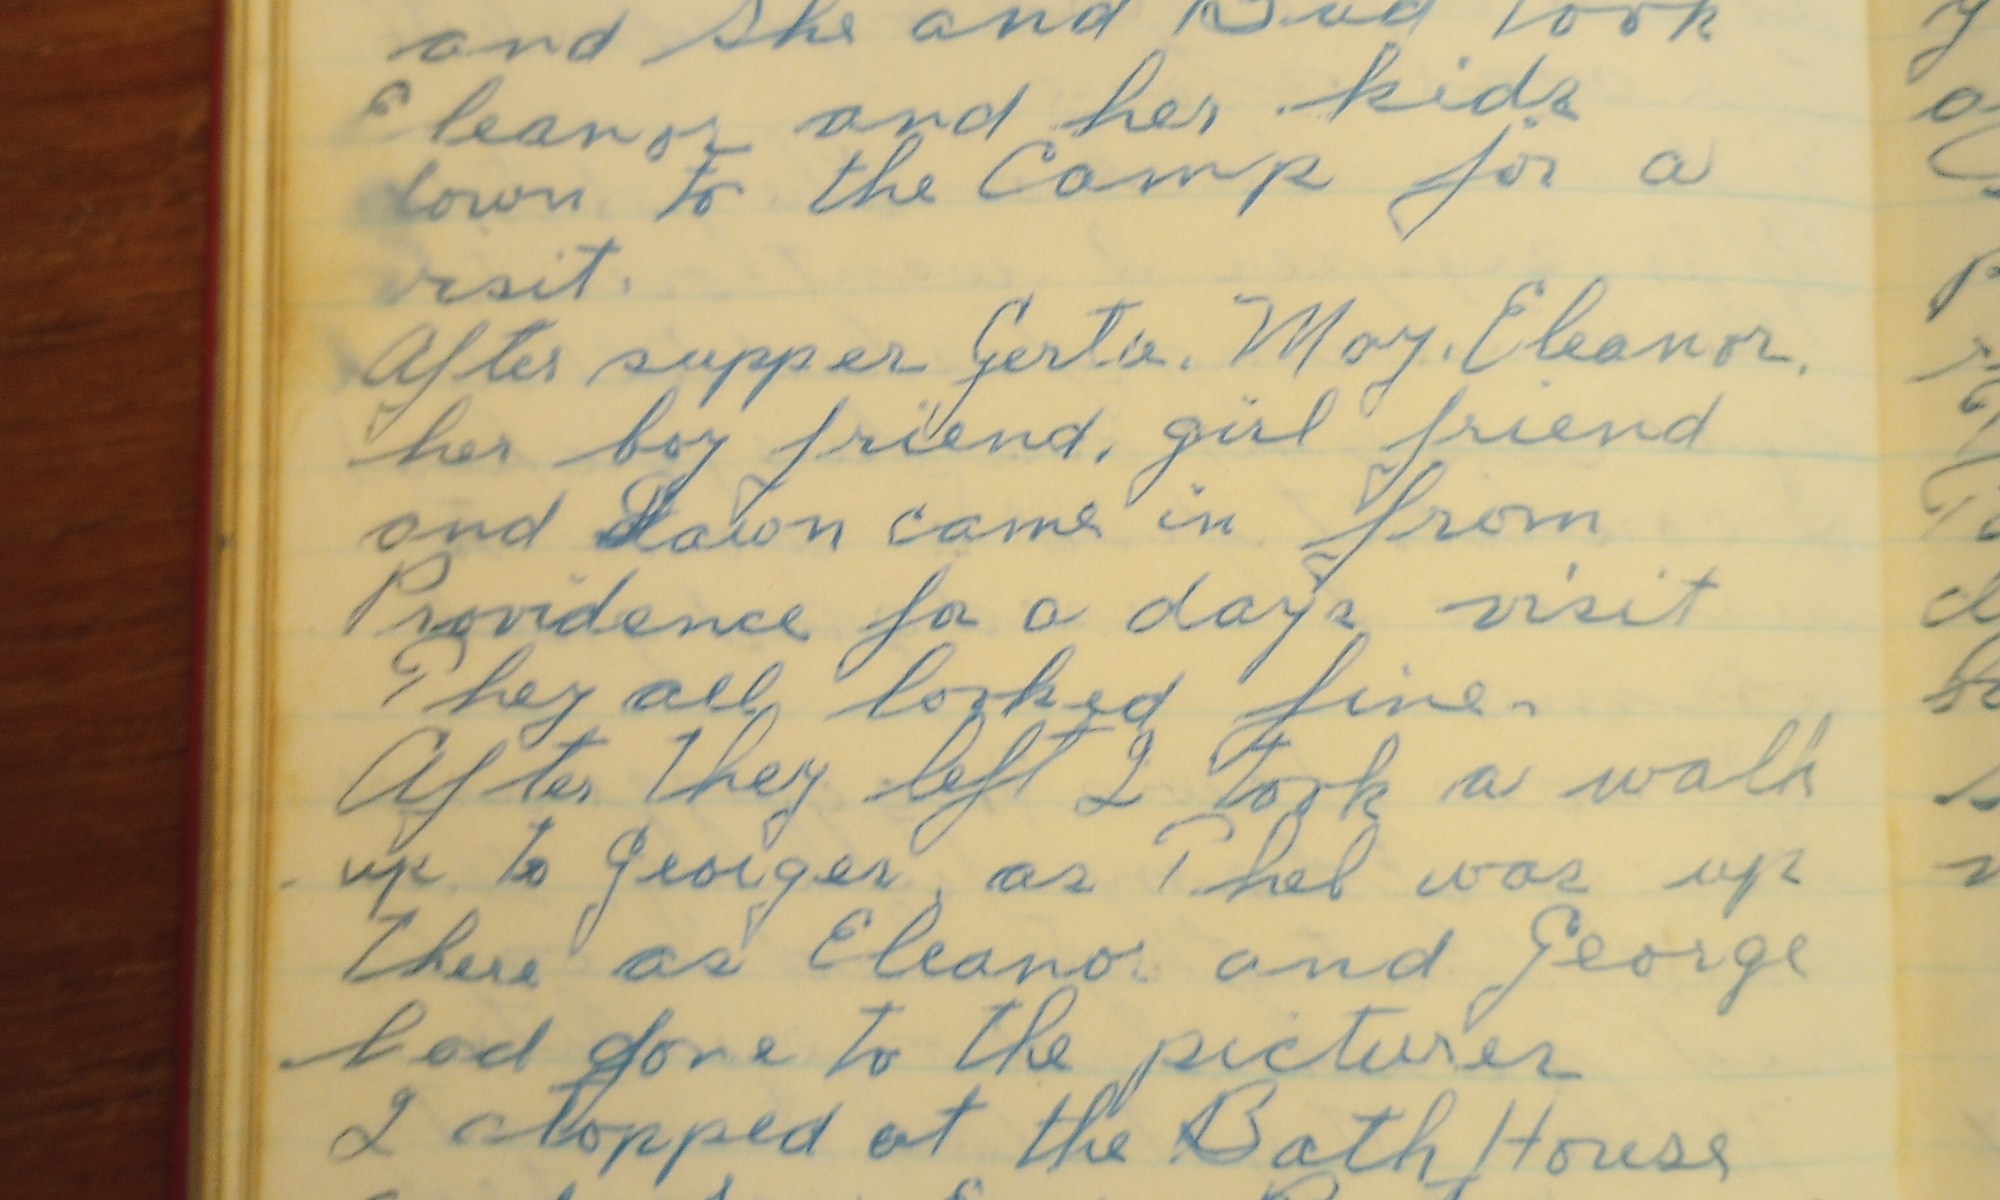 and she and Bud took
Eleanor and her kids
down to the Camp for a
visit.
After supper Gertie. May. Eleanor.
her boy friend, girl friend
and Dawn came in from
Providence for a days visit
They all looked fine.
After they left I took a walk
up to Georges, as Thel was up
there as Eleanor and George
had gone to the pictures
I stopped at the Bath House